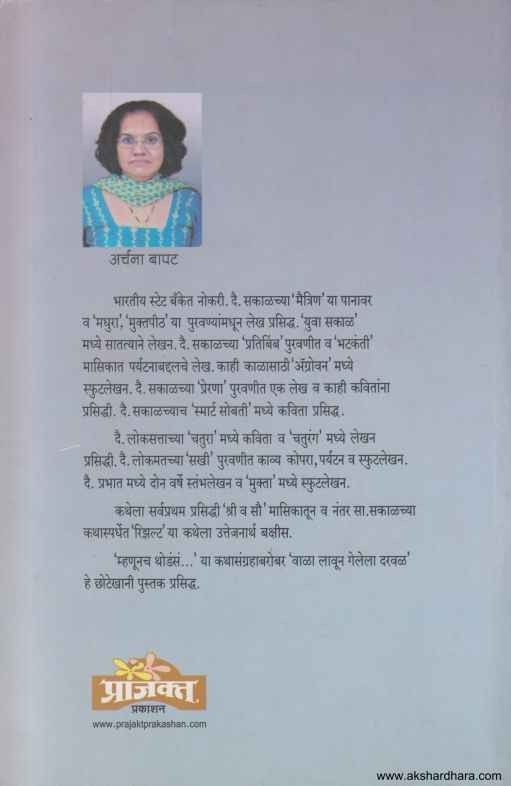 अर्चना बापट
भारतीय स्टेट बँकेत नोकरी. दै. सकाळच्या 'मैत्रिण' या पानावर
व 'मधुरा', 'मुक्तपीठ' या पुरवण्यांमधून लेख प्रसिद्ध. 'युवा सकाळ'
मध्ये सातत्याने लेखन. दै. सकाळच्या 'प्रतिबिंब' पुरवणीत व 'भटकंती'
मासिकात पर्यटनाबद्दलचे लेख. काही काळासाठी 'अ‍ॅग्रोवन' मध्ये
स्फुटलेखन. दै. सकाळच्या 'प्रेरणा' पुरवणीत एक लेख व काही कवितांना
प्रसिद्धी. दै. सकाळच्याच 'स्मार्ट सोबती' मध्ये कविता प्रसिद्ध.
दै. लोकसत्ताच्या 'चतुरा' मध्ये कविता व 'चतुरंग' मध्ये लेखन
प्रसिद्धी. दै. लोकमतच्या 'सखी' पुरवणीत काव्य कोपरा, पर्यटन व स्फुटलेखन.
दै. प्रभात मध्ये दोन वर्षे स्तंभलेखन व 'मुक्ता' मध्ये स्फुटलेखन.
कथेला सर्वप्रथम प्रसिद्धी 'श्री व सौ' मासिकातून व नंतर सा. सकाळच्या
कथास्पर्धेत 'रिझल्ट' या कथेला उत्तेजनार्थ बक्षीस.
'म्हणूनच थोडंसं...' या कथासंग्रहाबरोबर 'वाळा लावून गेलेला दरवळ'
हे छोटेखानी पुस्तक प्रसिद्ध.
प्राजक्त
प्रकाशन
www.prajaktprakashan.com
www.akshardhara.com